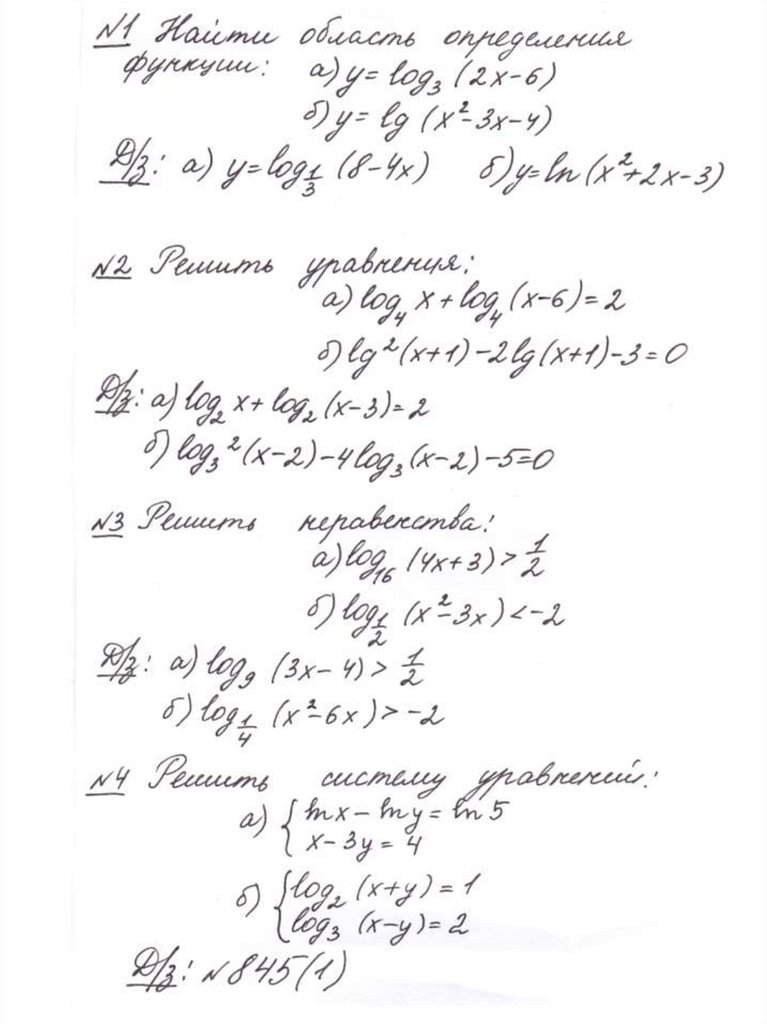 №1 Найти область определения
функции: а) y = log₃ (2x-6)
б) y = lg (x²-3x-4)
Д/з: а) y = log_{1/3} (8-4x) б) y = ln (x²+2x-3)
№2 Решить уравнения:
а) log₄ x + log₄ (x-6) = 2
б) lg²(x+1) - 2lg(x+1) - 3 = 0
Д/з: а) log₂ x + log₂ (x-3) = 2
б) log₃²(x-2) - 4log₃(x-2) - 5 = 0
№3 Решить неравенства:
а) log₁₆ (4x+3) > 1/2
б) log_{1/2} (x²-3x) < -2
Д/з: а) log₉ (3x-4) > 1/2
б) log_{1/4} (x²-6x) > -2
№4 Решить систему уравнений:
а) { ln x - ln y = ln 5
x - 3y = 4
б) { log₂ (x+y) = 1
log₃ (x-y) = 2
Д/з: №845(1)